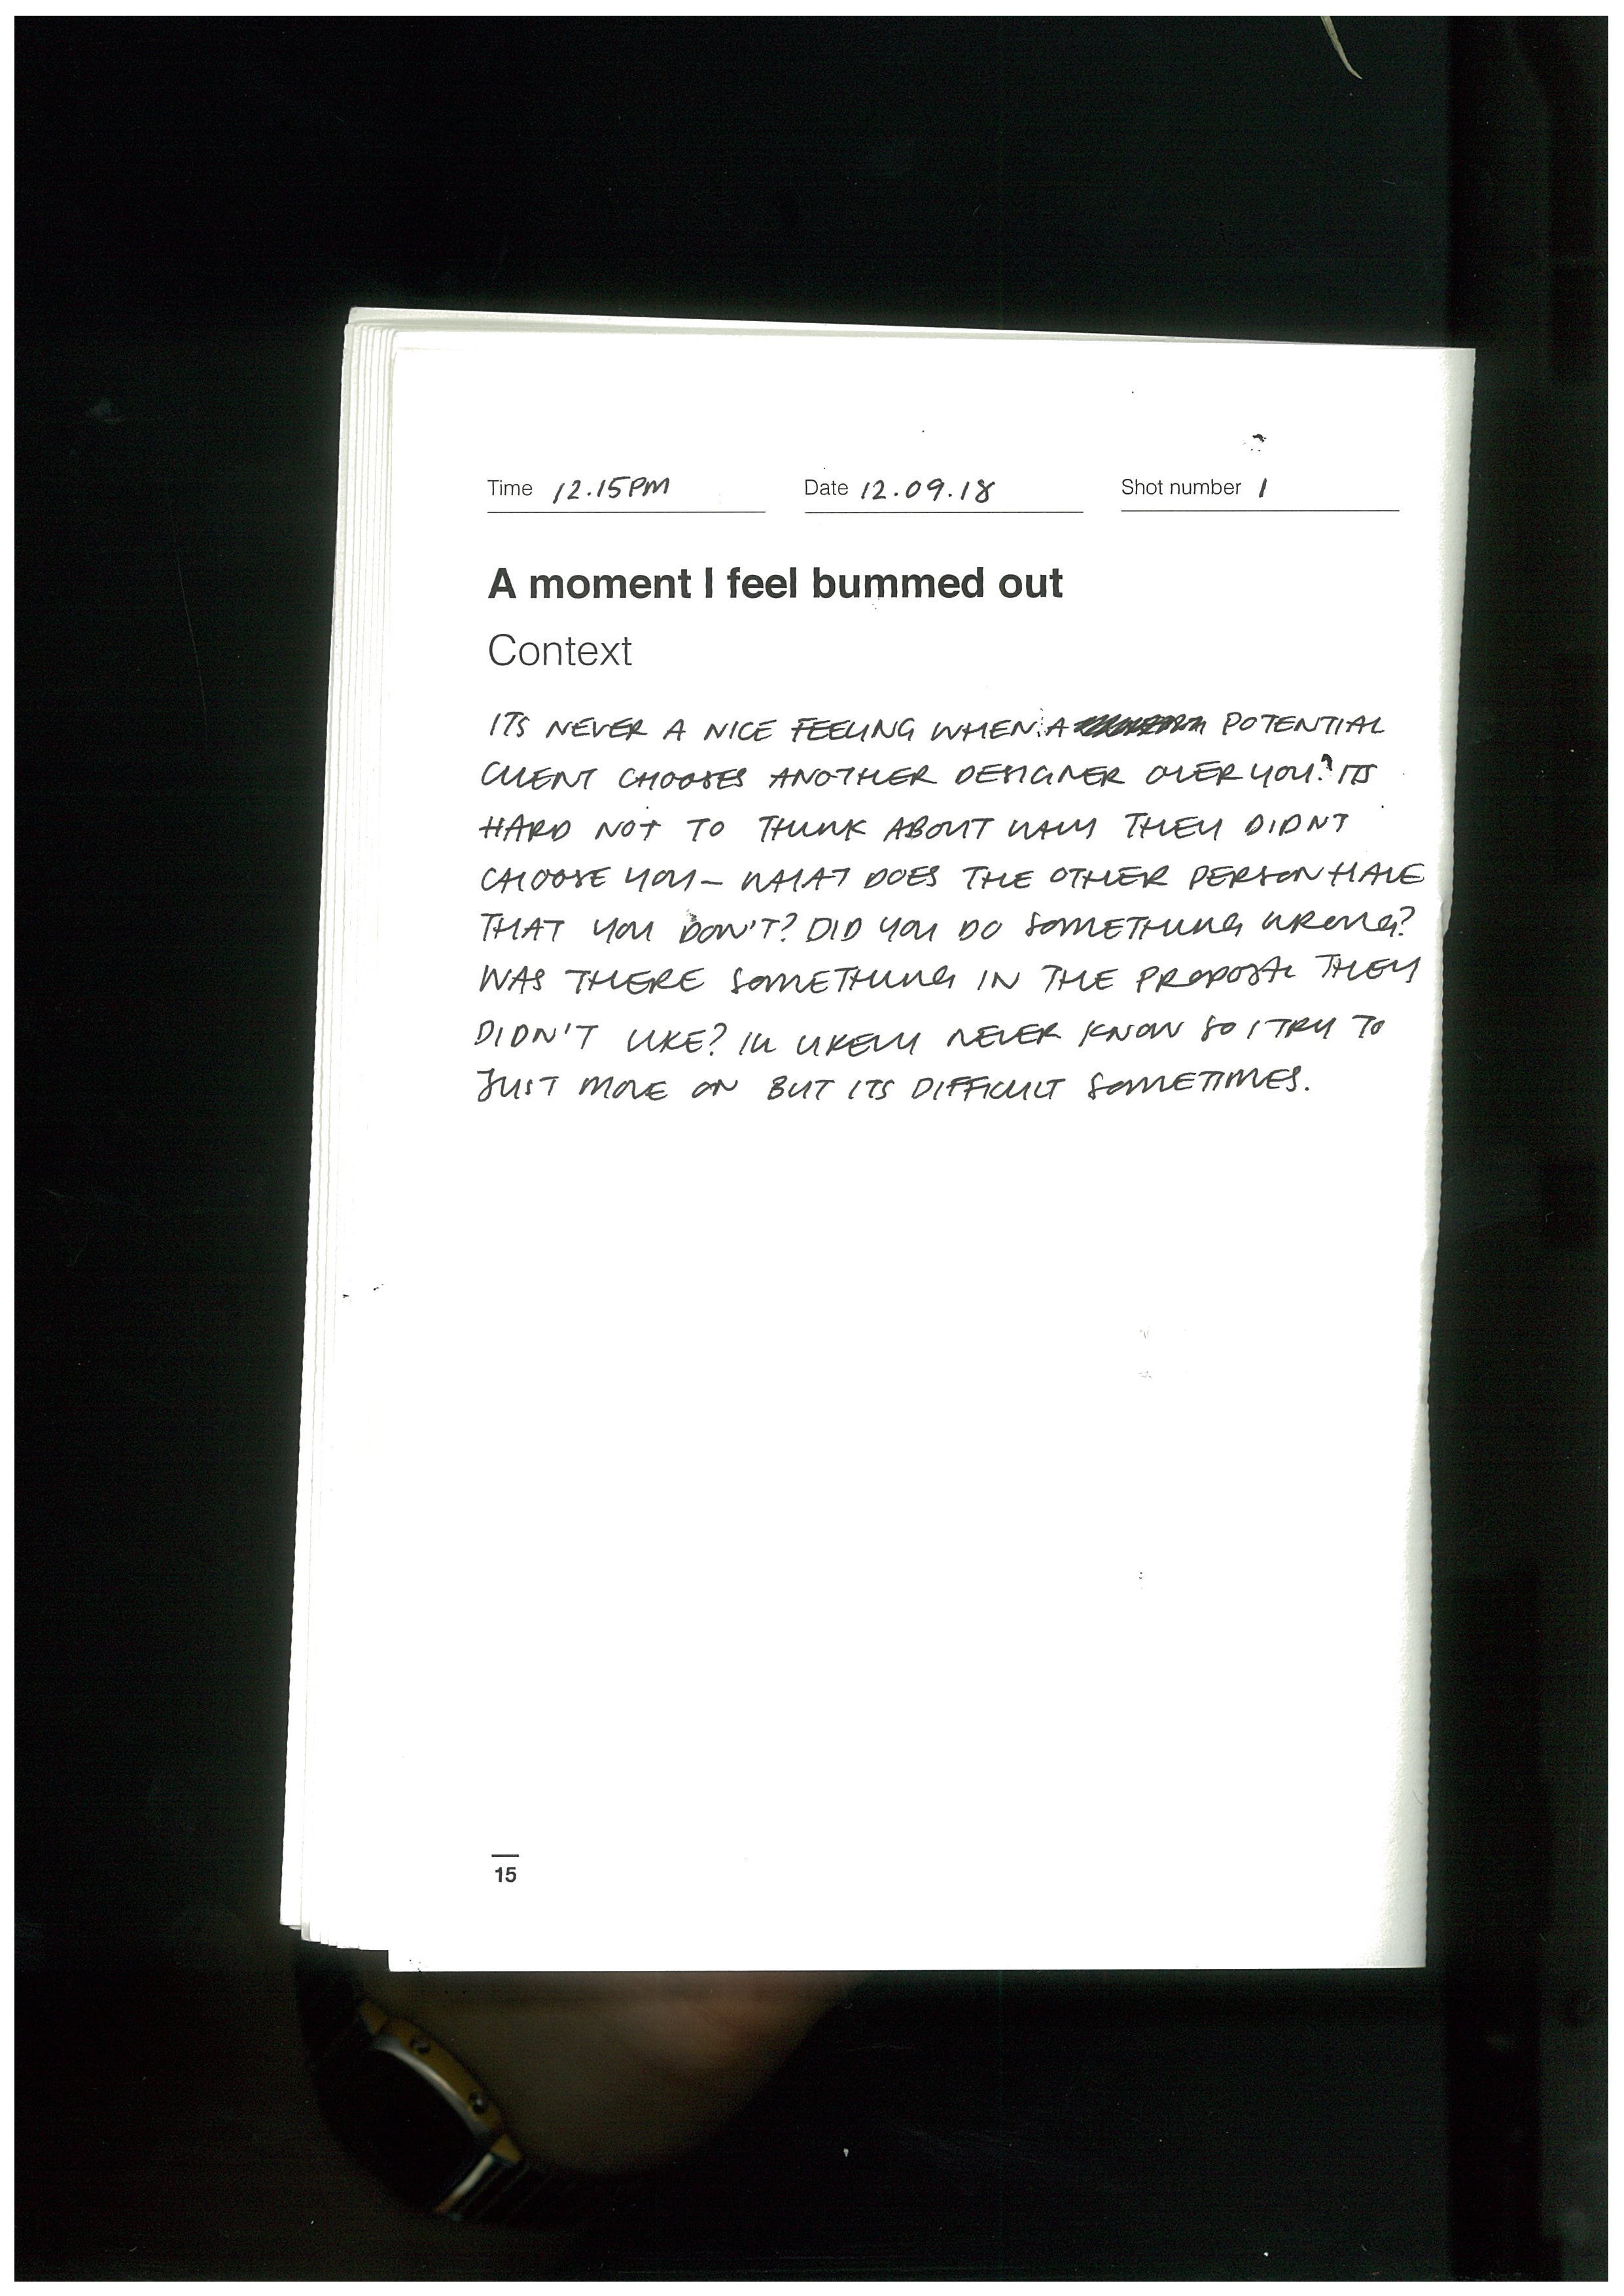 Time 12.15PM Date 12.09.18 Shot number 1
A moment I feel bummed out
Context
ITS NEVER A NICE FEELING WHEN A POTENTIAL
CLIENT CHOOSES ANOTHER DESIGNER OVER YOU. ITS
HARD NOT TO THINK ABOUT WHY THEY DIDNT
CHOOSE YOU – WHAT DOES THE OTHER PERSON HAVE
THAT YOU DON'T? DID YOU DO SOMETHING WRONG?
WAS THERE SOMETHING IN THE PROPOSAL THEY
DIDN'T LIKE? ILL LIKELY NEVER KNOW SO I TRY TO
JUST MOVE ON BUT ITS DIFFICULT SOMETIMES.
15